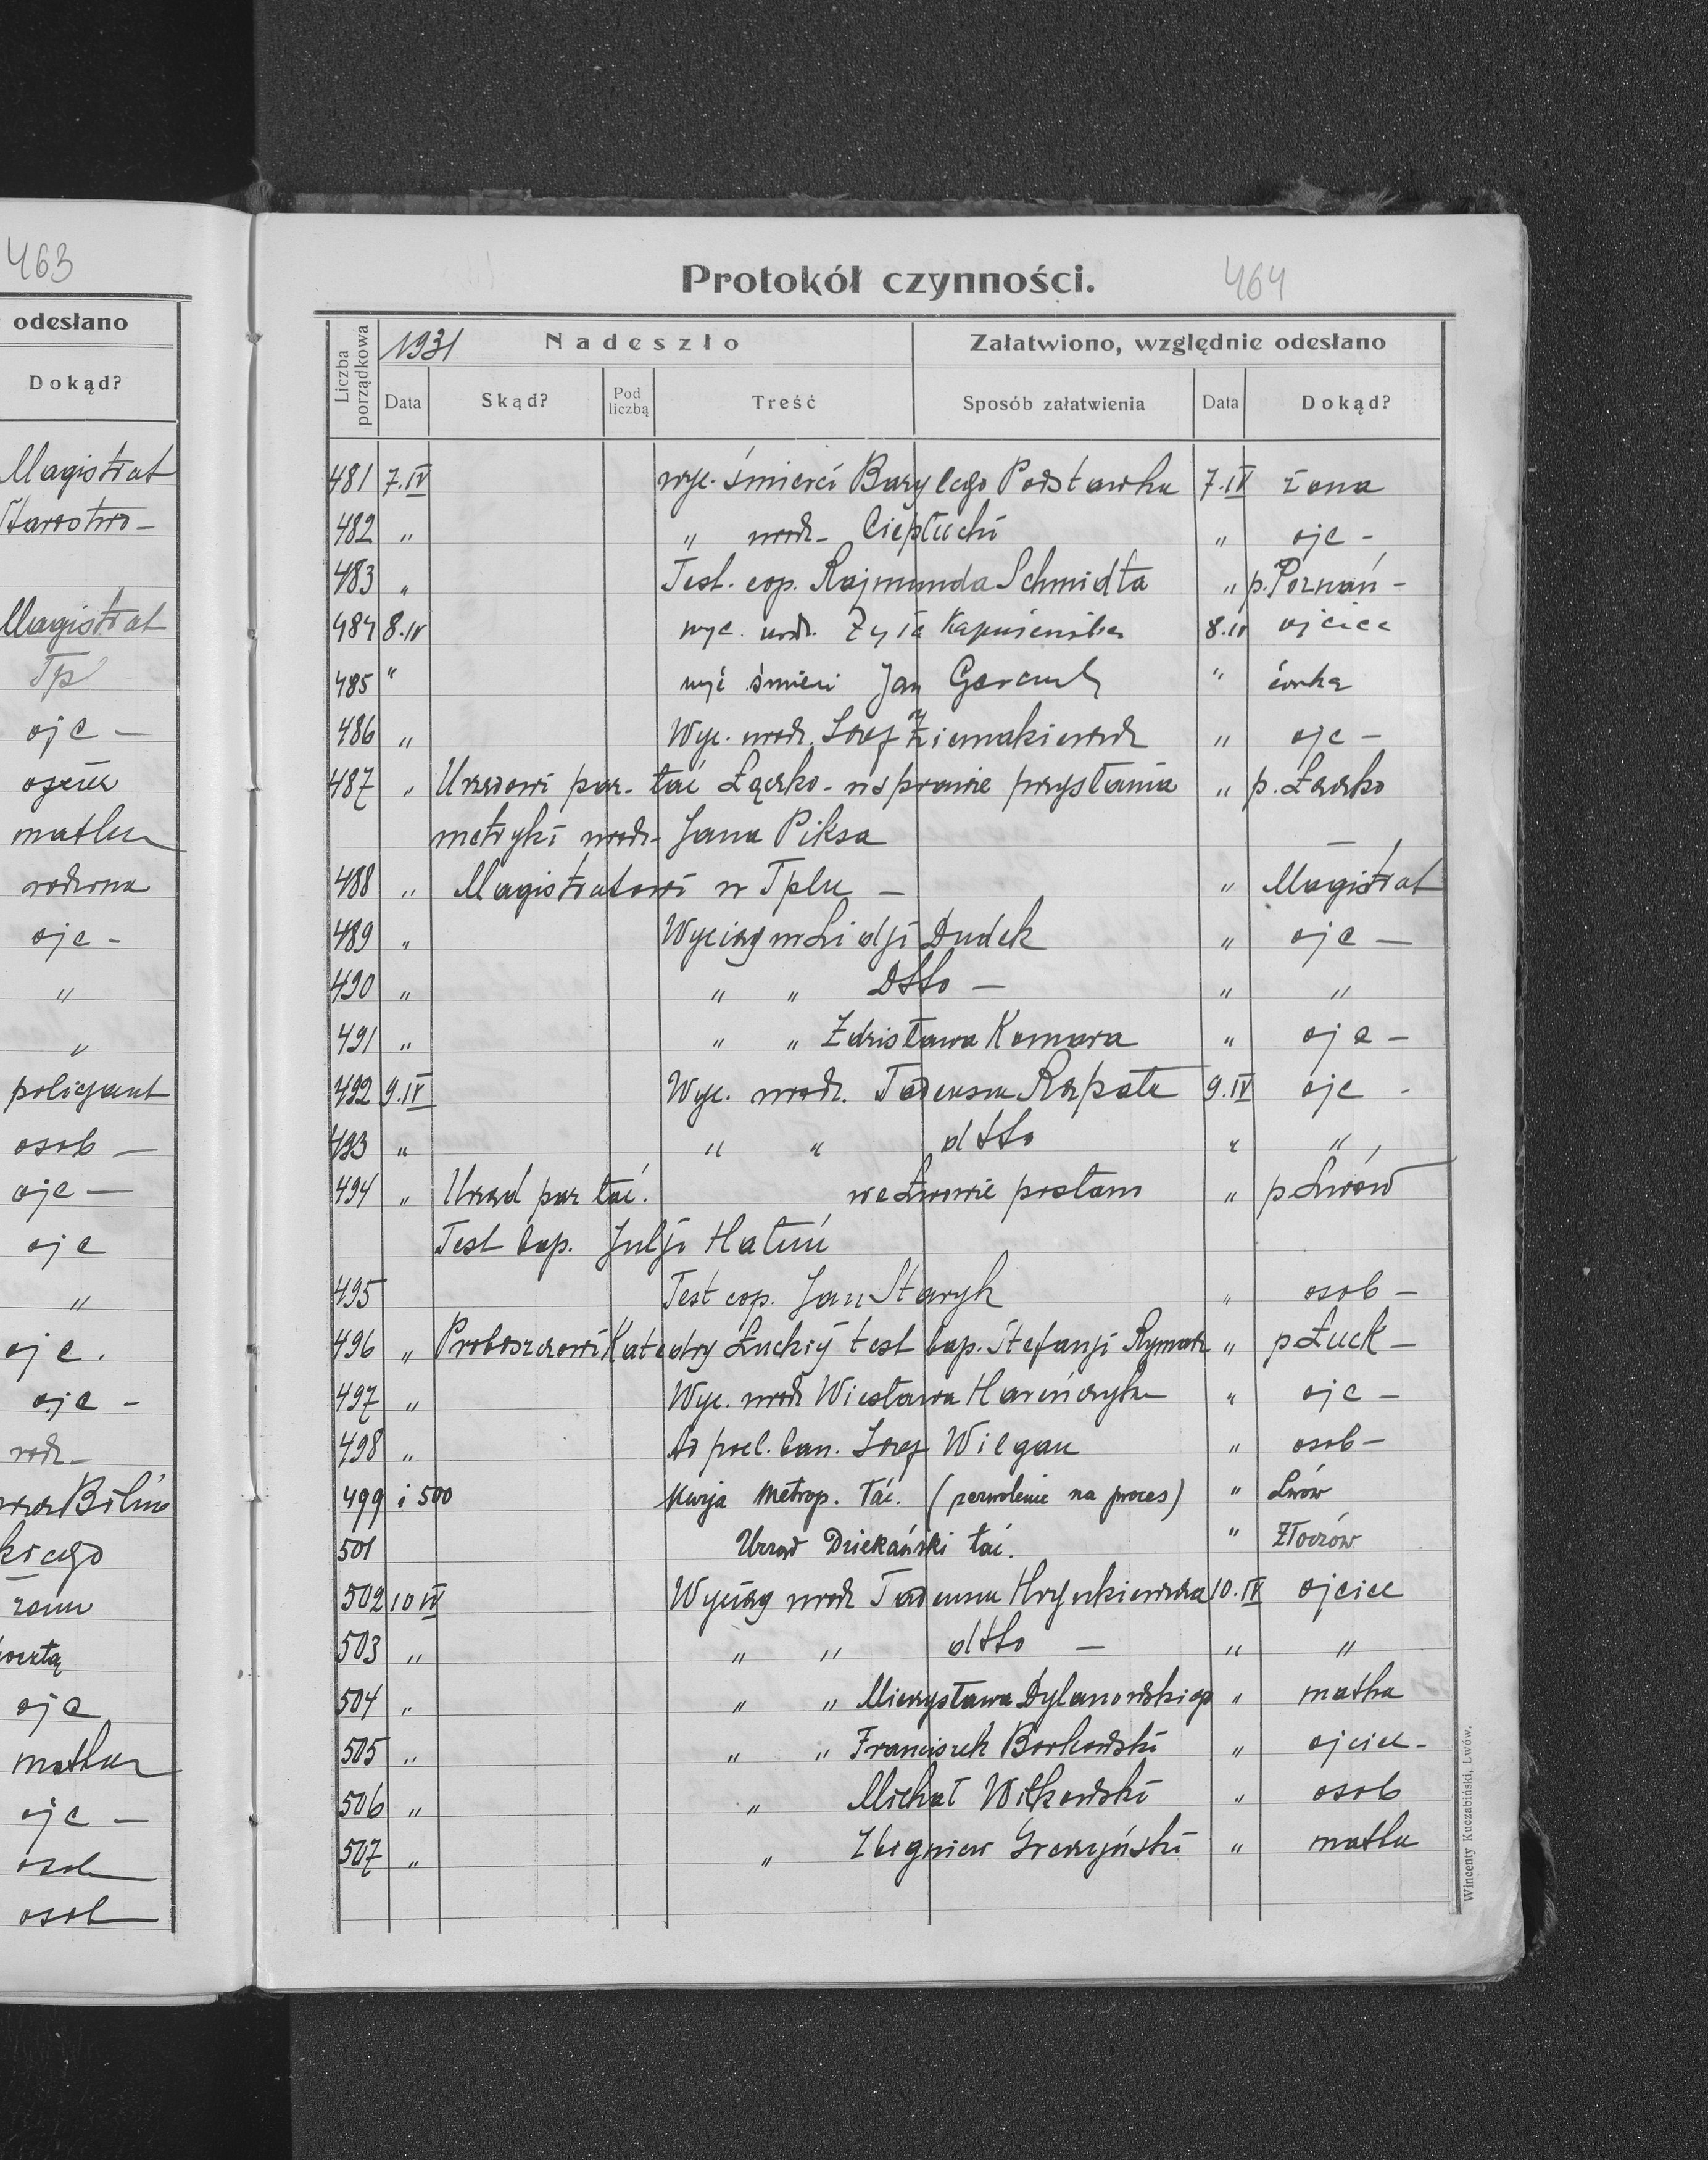 463
odesłano
Dokąd?
Magistrat
Starostwo -
Magistrat
Tp
ojc -
matka
rodzona
ojc -
"
"
policjant
osob -
ojc -
ojc
"
ojc.
ojc -
rodz -
kiego
żona
pocztą
ojc
matka
ojc -
osob
osob
Protokół czynności.
464
Liczba porządkowa
1931
Nadeszło
Załatwiono, względnie odesłano
Data
Skąd?
Pod liczbą
Treść
Sposób załatwienia
Data
Dokąd?
481 7.IV wyc. śmierci Bazylego Podstawka 7.IV żona
482 " " urodz - Ciepłuchi " ojc -
483 " Test. cop. Rajmunda Schmidta " p. Poznań -
484 8.IV wyc. urdz. Zyta Kapuścińska 8.IV ojciec
485 " wyć śmierci Jan " córka
486 " Wyc. urodz. Józef Ziemakiewicz " ojc -
487 " Urzędowi par. łać Łącko - w sprawie przysłania " p. Łącko
metryki urodz - Jana Piksa
488 " Magistratowi w Tplu - " Magistrat
489 " Wyciąg ur Lidji Dudek " ojc -
490 " " " Dtto - " "
491 " " " Zdzisława Komara " ojc -
492 9.IV Wyc. urodz. Tadeusza Rzpate 9.IV ojc -
493 " " " dtto " "
494 " Urząd par łać. we Lwowie posłano " p Lwów
Test bap. Julji
495 Test cop. Jan Staryk " osob -
496 " Proboszczowi Katedry Łuckiej test bap. Stefanji Rymarz " p Łuck -
497 " Wyc. urodz Wiesława Hareńczyka " ojc -
498 " Ad proel. ban. Józef Wilgan " osob -
499 i 500 Kurja Metrop. łać. (zezwolenie na proces) " Lwów
501 Urząd Dziekański łać. " Złoczów
502 10 IV Wyciąg urodz Tadeusza Hrynkiewicza 10.IV ojciec
503 " " " dtto - " "
504 " " " Mieczysława Dylanowskiego " matka
505 " " " Franciszek Borkowski " ojciec -
506 " " Michał Witkowski " osob
507 " " Zbigniew Greczyński " matka
Wincenty Kuczabiński, Lwów.